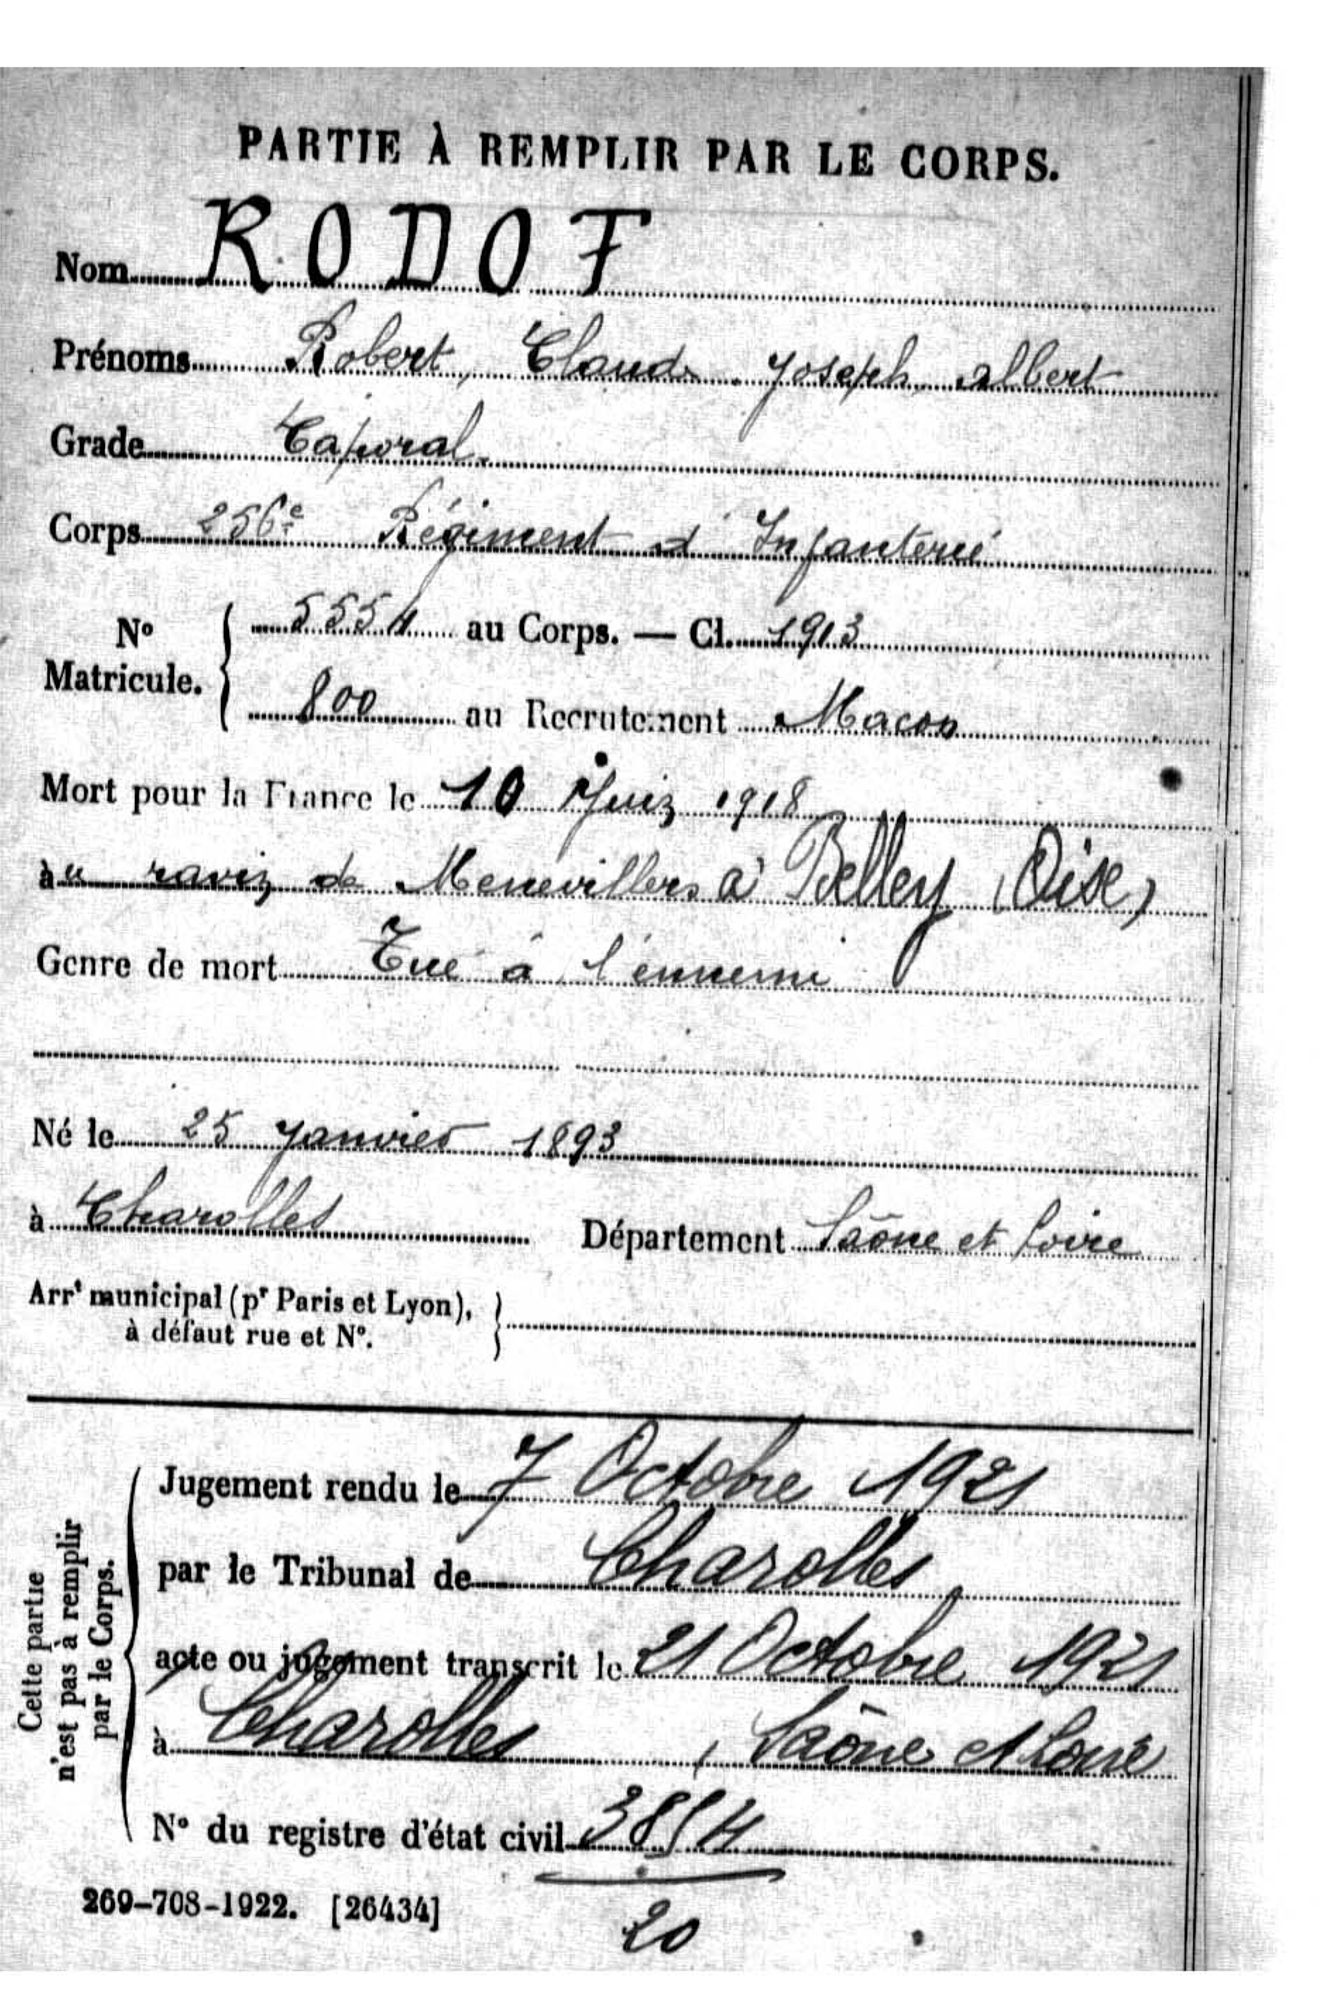 PARTIE À REMPLIR PAR LE CORPS.
Nom RODOT
Prénoms Robert, Claude Joseph, Albert
Grade Caporal.
Corps 256e Régiment d'Infanterie
No Matricule. 5554 au Corps. — Cl. 1913
800 au Recrutement Macon
Mort pour la France le 10 Juin 1918
au ravin de Menevillers à Belley (Oise)
Genre de mort Tué à l'ennemi
Né le 25 Janvier 1893
à Charolles Département Saône et Loire
Arrt municipal (pr Paris et Lyon),
à défaut rue et No.
Cette partie
n'est pas à remplir
par le Corps.
Jugement rendu le 7 Octobre 1921
par le Tribunal de Charolles
acte ou jugement transcrit le 21 Octobre 1921
à Charolles, Saône et Loire
No du registre d'état civil
20
269-708-1922. [26434]